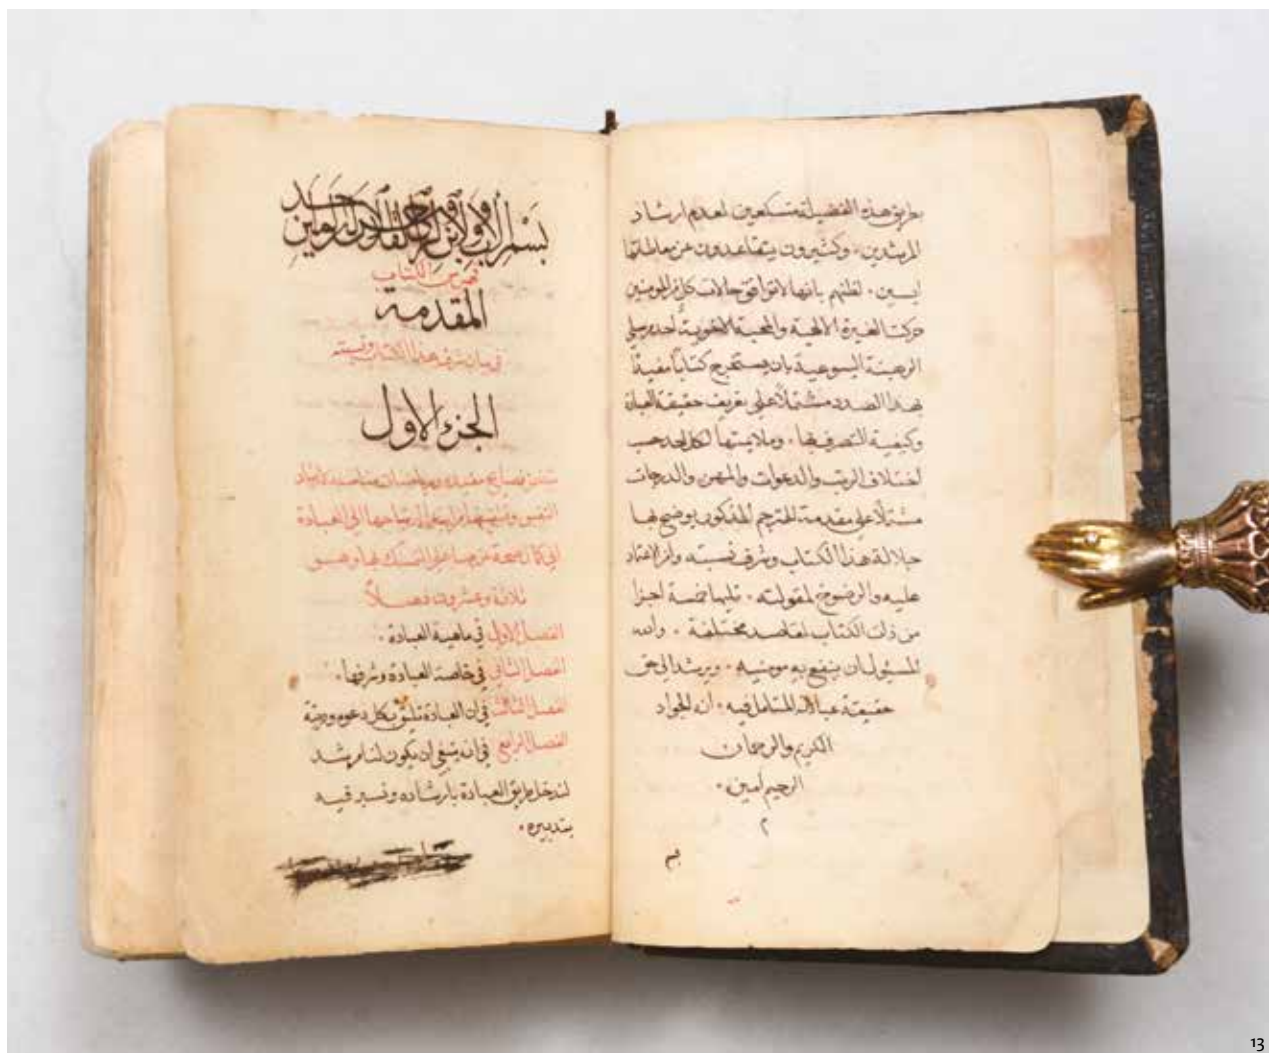 بطريق هذه الفضيلة متسكعين لعدم ارشاد
المرشدين، وكثيرون يتقاعدون عن معاطاتها
ايسين. لظنهم بانها لا توافق حالات كل من المومنين
حركت الغيرة الالهية والمحبة الاخوية احد مرسلي
الرهبنة اليسوعية بان يستخرج كتاباً مفيداً
بهذا الصدد مشتملاً على تعريف حقيقة العبادة
وكيفية التصرف بها. وملايمتها لكل احد حسب
اختلاف الرتب والدعوات والمهن والدرجات
مشتملاً على مقدمة المترجم المذكور يوضح بها
جلالة هذا الكتاب وشرف نسبته ولزوم الاعتماد
عليه والرضوخ لمقولته. تليها خمسة اجزا
من ذلك الكتاب لمقاصد مختلفة. والله
المسئول ان ينفع به مومنيه. ويرشد الى حق
حقيقة عبادته المتامل فيه. انه الجواد
الكريم والرحمان
الرحيم امين.
م
بسم الاب والابن والروح القدس الاله الواحد امين
فهرس الكتاب
المقدمة
في بيان شرف هذا الكتاب وقسمته
الجزء الاول
يتضمن نصايح مفيده ورياضات مناسبه لارشاد
النفس من ابتدا ارتياحها الى العبادة
الى كمال عزمها على التمسك بها وهو
ثلاثة وعشرون فصلاً
الفصل الاول في ماهية العبادة.
الفصل الثاني في خاصة العبادة وشرفها.
الفصل الثالث في ان العبادة تليق بكل دعوه ورتبة
الفصل الرابع في انه ينبغي ان يكون لنا مرشد
لندخل طريق العبادة بارشاده ونسير فيه
بتدبيره.
13